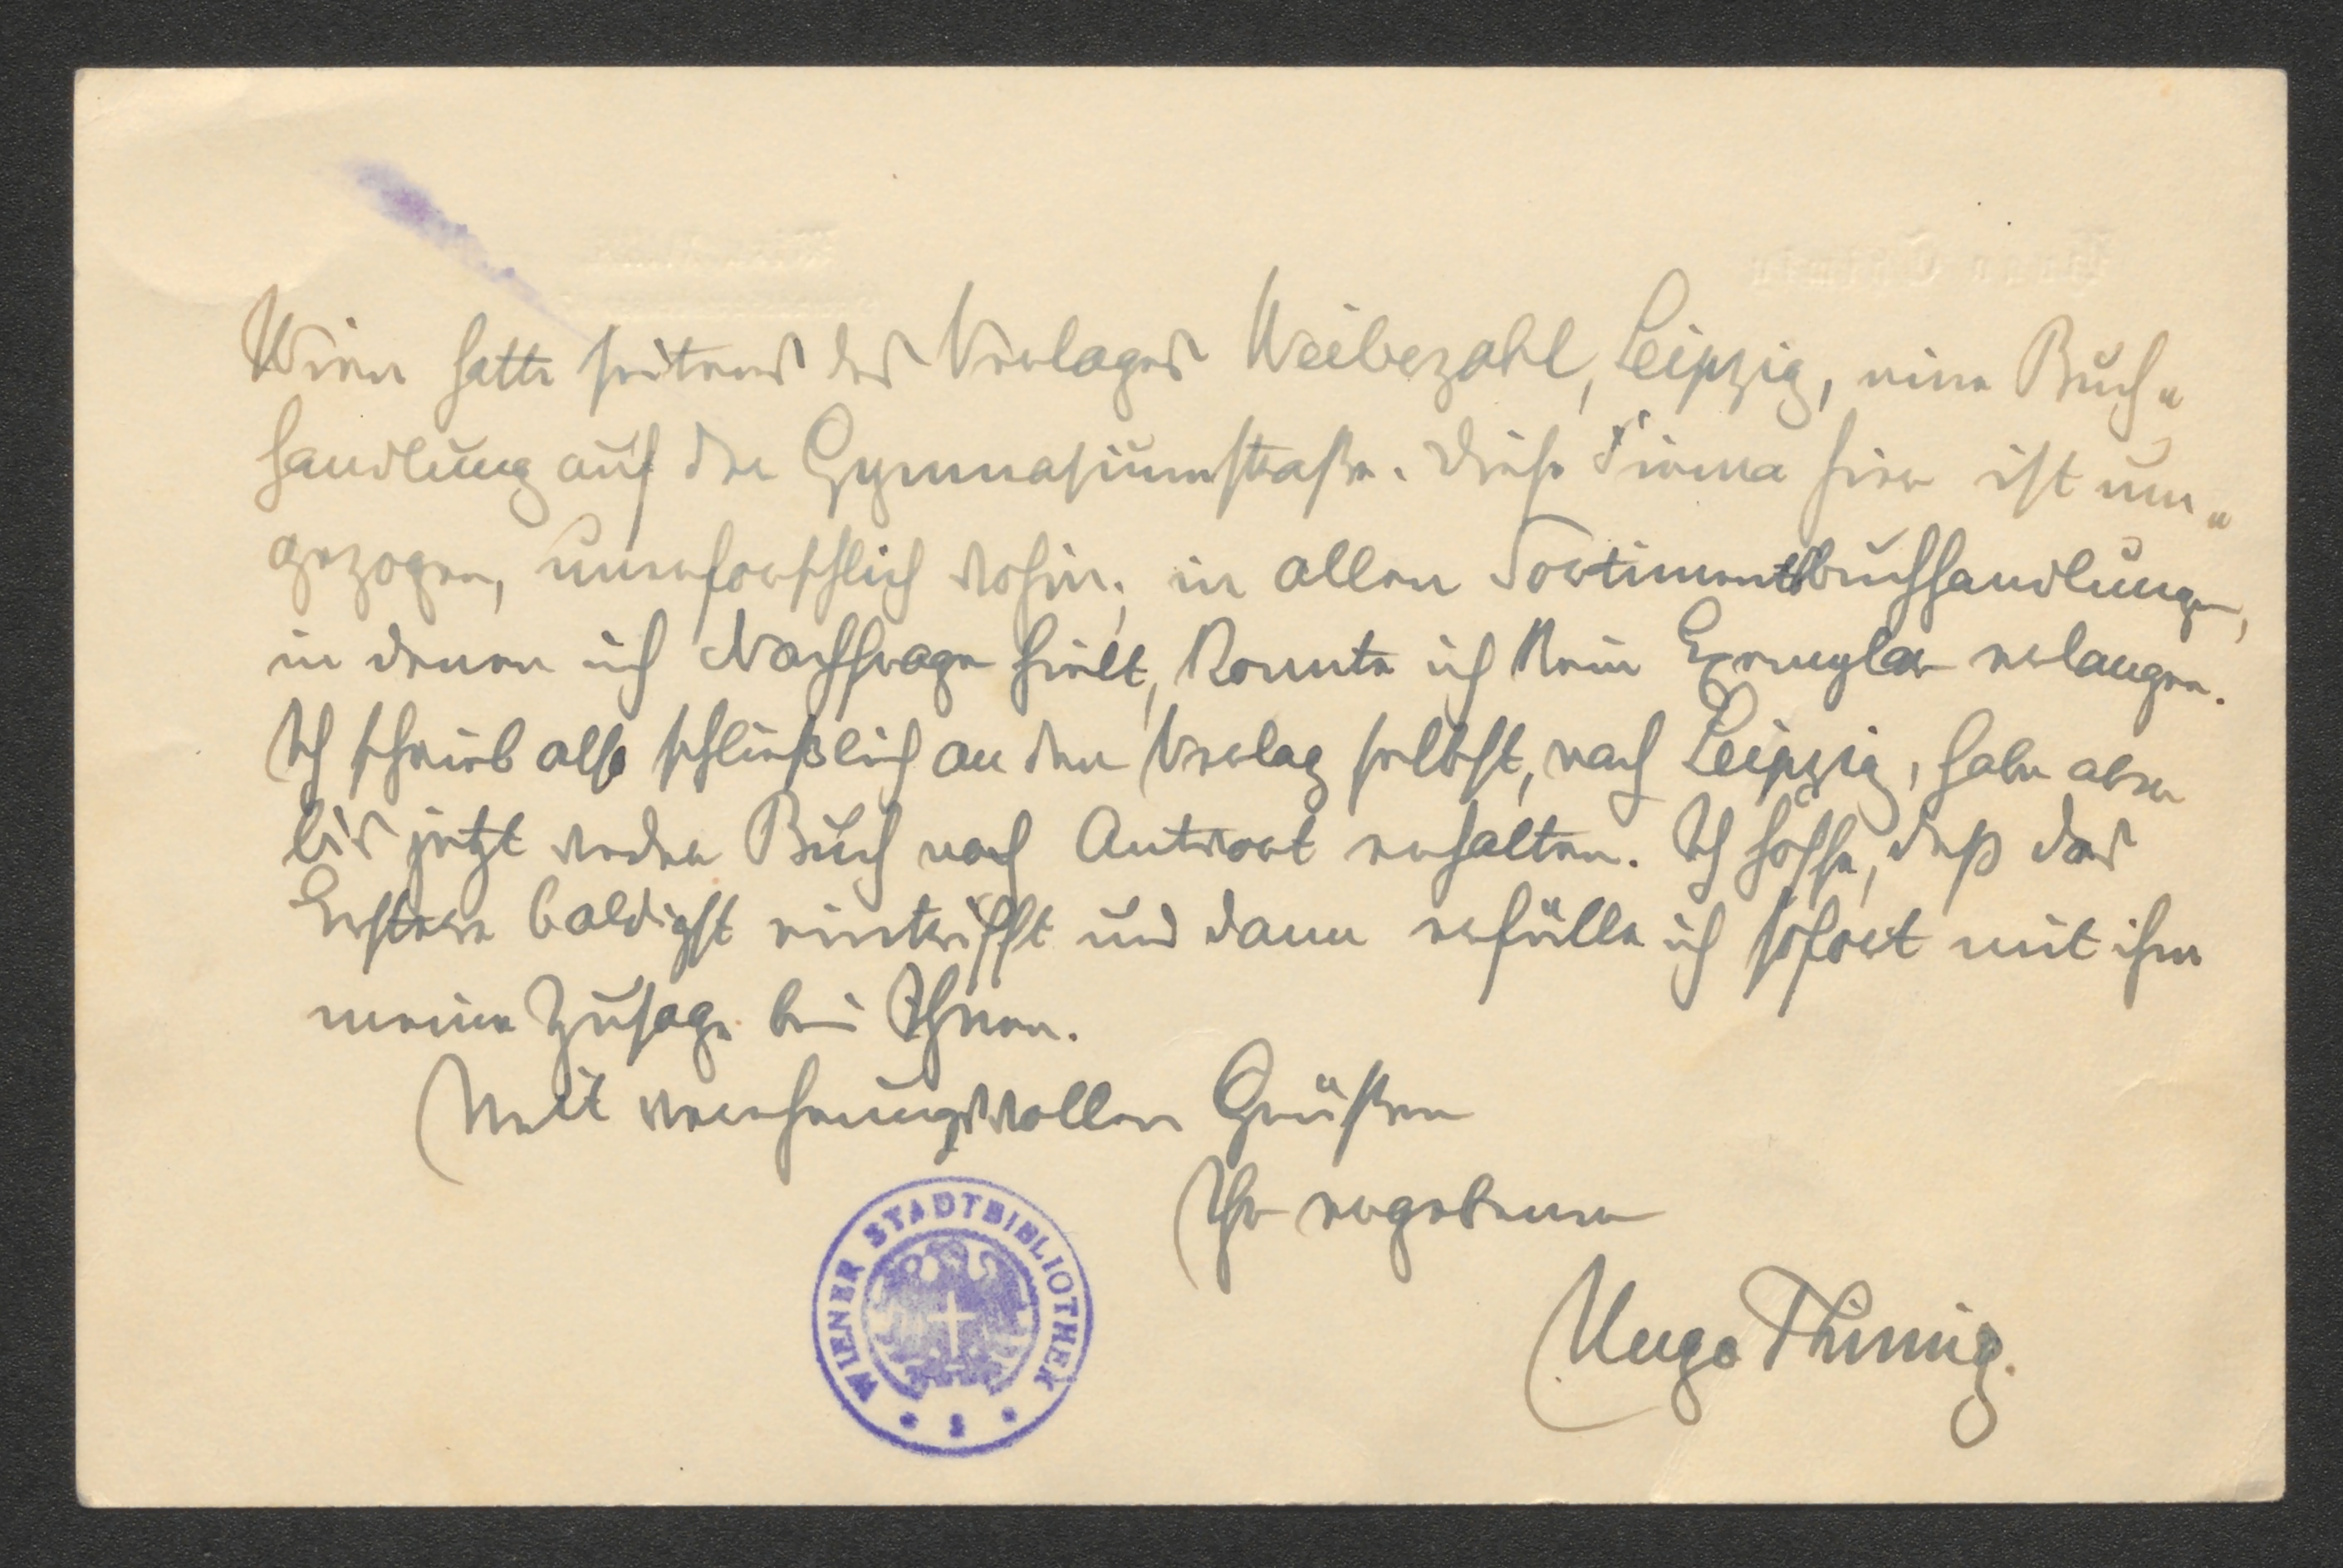 Wien hatte seitens des Verlages Weibezahl, Leipzig, eine Buch„
handlung auf der Gymnasiumstraße. Diese Firma hier ist um„
gezogen, unerforschlich wohin; in allen Sortimentsbuchhandlungen,
in denen ich Nachfrage hielt, konnte ich kein Exemplar erlangen.
Ich schrieb also schließlich an den Verlag selbst, nach Leipzig, habe aber
bis jetzt weder Buch noch Antwort erhalten. Ich hoffe, daß das
Erstere baldigst eintrifft und dann erfülle ich sofort mit ihm
meine Zusage bei Ihnen.
Mit verehrungsvollen Grüßen
Ihr ergebener
Hugo Thimig.
WIENER STADTBIBLIOTHEK